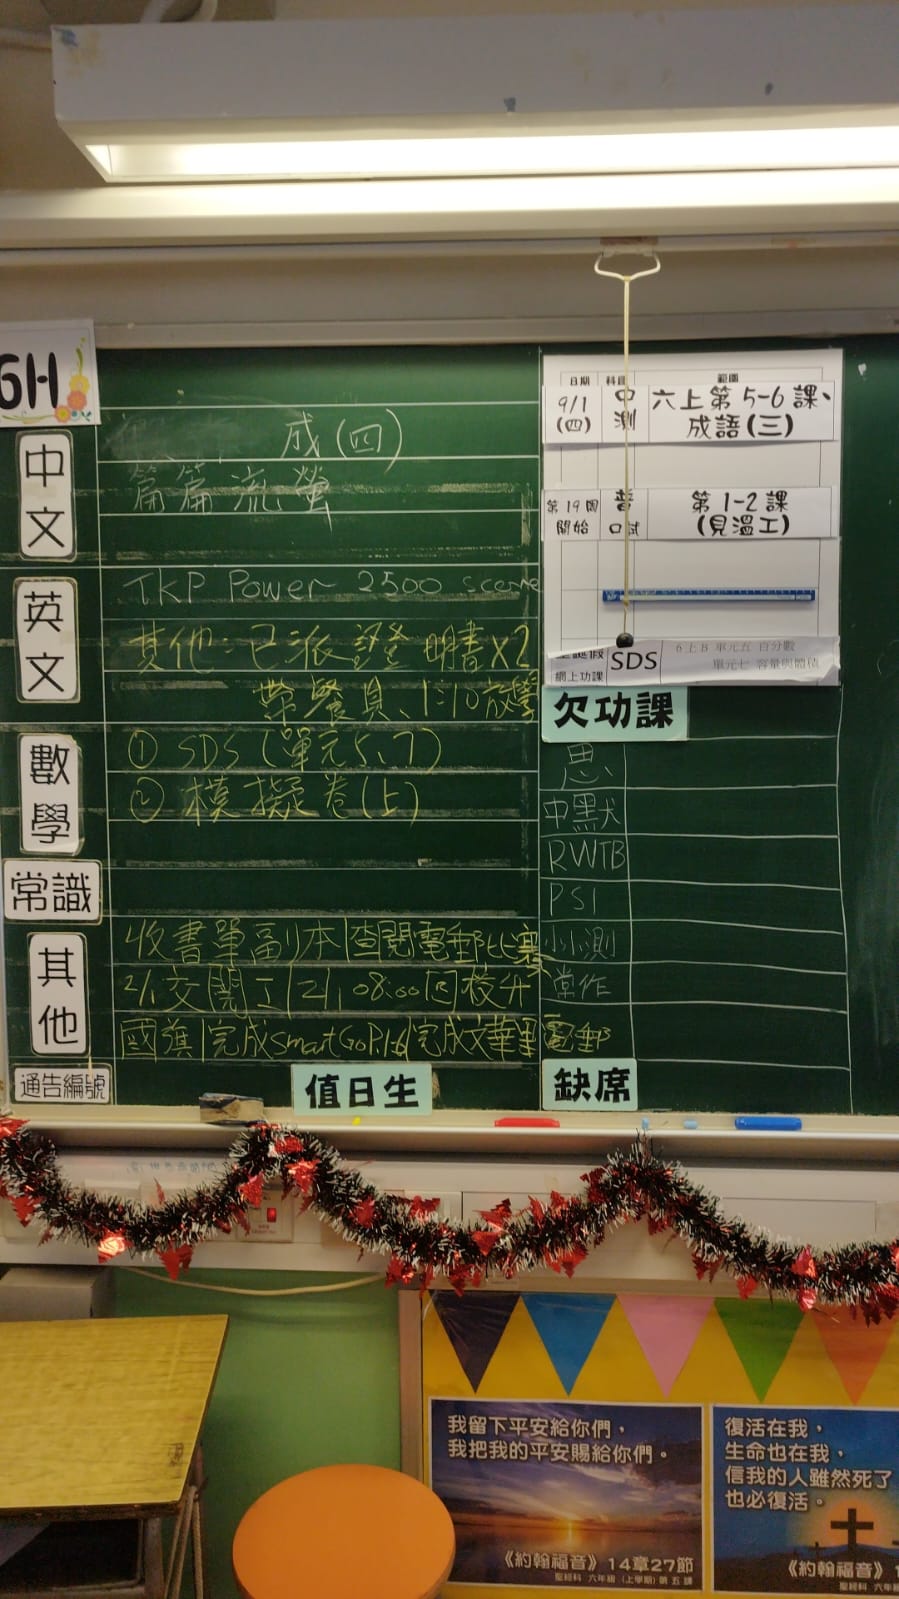 6H
中文
成(四)
篇篇流螢
英文
TKP Power 2500 score
其他：已派證明書X2
帶餐具、1:10放學
數學
① SDS (單元5、7)
② 模擬卷(上)
常識
其他
收書單副本|查閱電郵比賽
2/1交開工|2/1 08:00回校升
國旗|完成SmartGoP.1-6|完成文華里電郵
通告編號
值日生
日期 科目 範圍
9/1(四) 中測 六上第5-6課、成語(三)
第19周開始 普口試 第1-2課(見溫工)
聖誕假網上功課 SDS 6上B 單元五 百分數
單元七 容量與體積
欠功課
思
中默
RWTB
PS1
小測
常作
缺席
我留下平安給你們，
我把我的平安賜給你們。
《約翰福音》14章27節
聖經科 六年級 (上學期) 第五課
復活在我，
生命也在我，
信我的人雖然死了
也必復活。
《約翰福音
聖經科 六年級